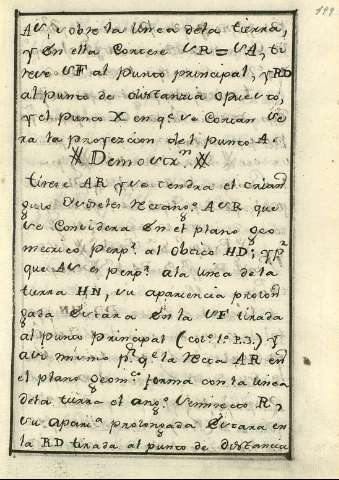 199
AV, sobre la linea dela tierra,
y en ella Cortese VR=VA, ti
rese VF al punto principal, y RD
al punto de distanzia opuesto,
y el punto X en q.e se Cortan se
ra la proyeccion del punto A.
Demostr.on
tirese AR y se tendra el trian
gulo Ysoceles rectang.o AVR que
se Considera en el plano geo
metrico perp.r al obtico HD; y p.r
que AV es perp.r ala linea dela
tierra HN, su apariencia prolon
gada estara en la VF tirada
al punto principal (col.o 1.o P.3.) Y
asi mismo p.r q.e la recta AR en
el plano geom.co forma con la linea
dela tierra el ang.o semirecto R,
su apar.a prolongada estara en
la RD tirada al punto de distancia